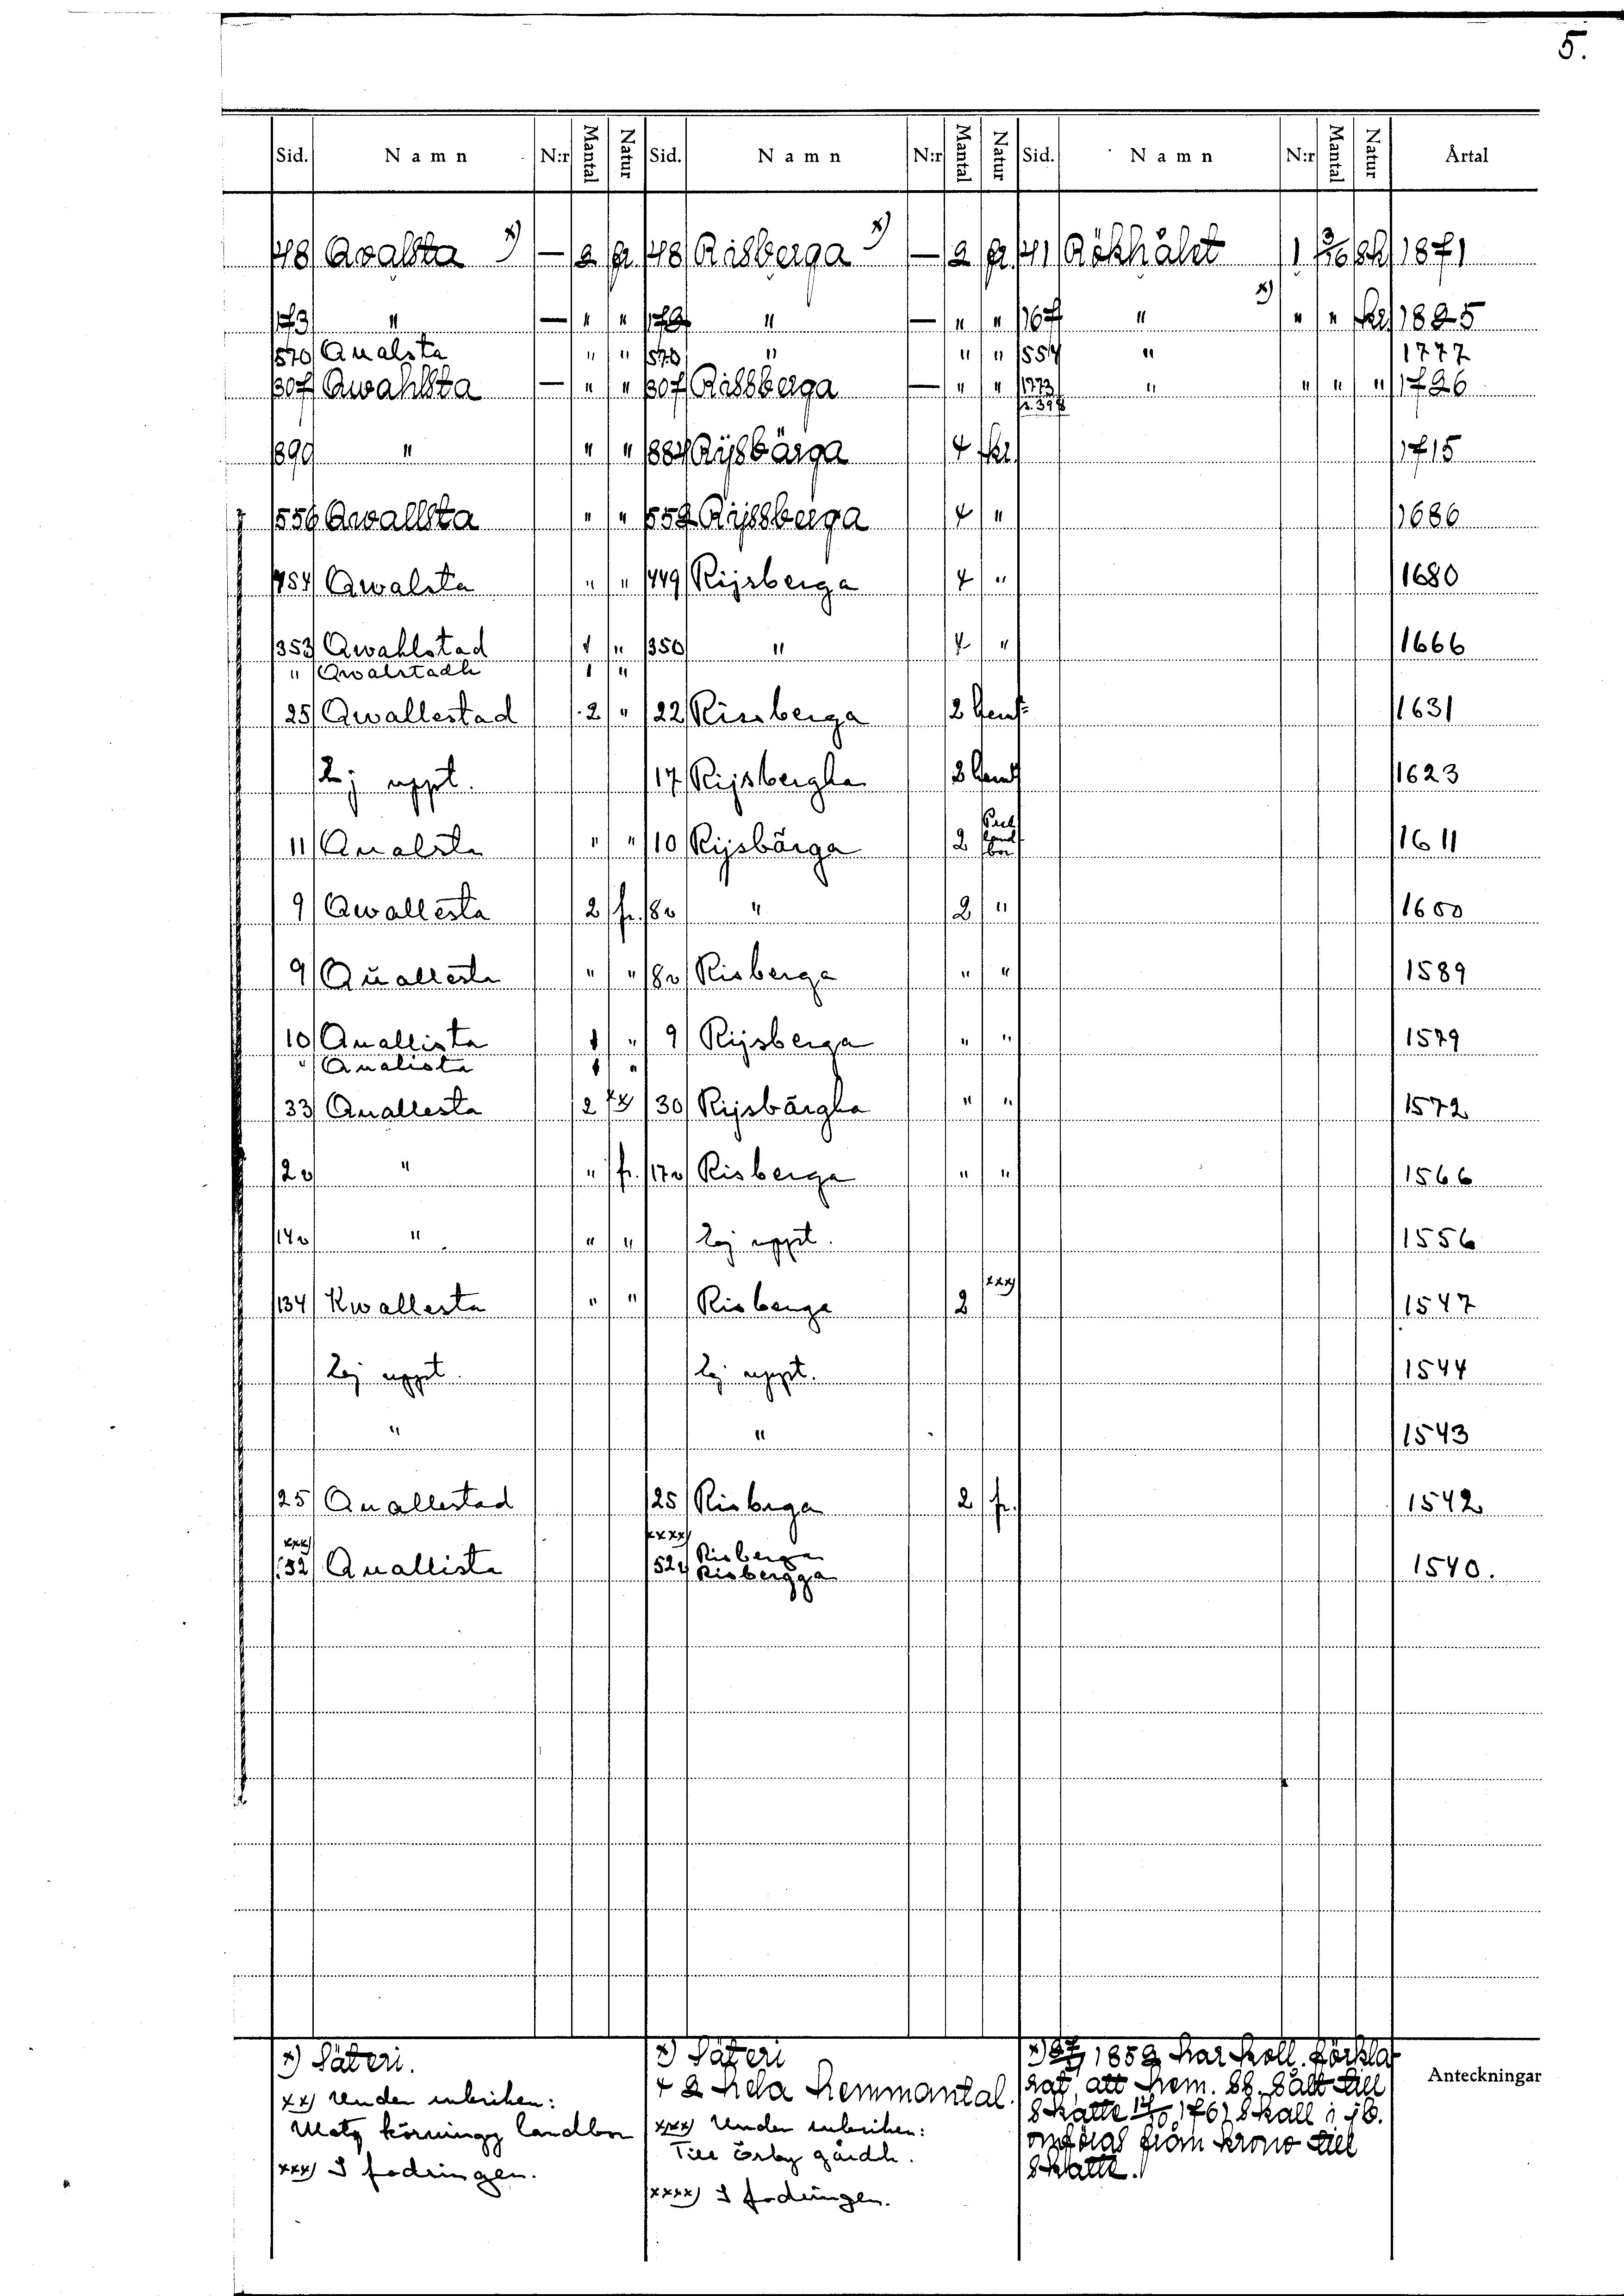 5.
Sid. Namn N:r Mantal Natur Sid. Namn N:r Mantal Natur Sid. Namn N:r Mantal Natur Årtal
48 Qvalsta x) — 2 fr. 48 Risberga x) — 2 fr. 41 Rökhålet 1 3/16 sk 1871
173 " — " " 172 " — " " 167 " x) " " kr. 1825
570 Qualsta " " 570 " " " 554 " 1777
307 Qwahlsta — " " 307 Rissberga — " " 1773 " " " " 1726
s. 398
890 " " " 884 Rijsbärga 4 kr. 1715
556 Qwallsta " " 552 Rijssberga 4 " 1686
454 Qwalsta " " 449 Rijsberga 4 " 1680
353 Qwahlstad 1 " 350 " 4 " 1666
" Qwalstadh 1 "
25 Qwallestad 2 " 22 Rissberga 2 1631
Ej uppt. 17 Rijsbergha 2 1623
11 Qualsta " " 10 Rijsbärga 2 land bor 1611
9 Qwallesta 2 fr. 8v " 2 " 1600
9 Quallesta " " 8v Risberga " " 1589
10 Quallista 1 " 9 Rijsberga " " 1579
" Qualista 1 "
33 Quallesta 2 xx) 30 Rijsbärgha " " 1572
2v " " fr. 17v Risberga " " 1566
14v " " " Ej uppt. 1556
134 Kwallesta " " Risberga 2 xxx) 1547
Ej uppt. Ej uppt. 1544
" " 1543
25 Quallestad 25 Risberga 2 fr. 1542
xxx) xxxx) Risberga
152 Quallista 52v Risbergga 1540.
x) Säteri.
xx) Under rubriken:
Matz körningz landbor
xxx) I fodringen.
x) Säteri
4 2 hela hemmantal.
xxx) Under rubriken:
Till Örby gårdh.
xxxx) I fodringen.
x) 1852 har koll. förkla-
rat, att hem. ss. sålt till
skatte 1761 skall i jb.
omföras från krono till
skatte.
Anteckningar